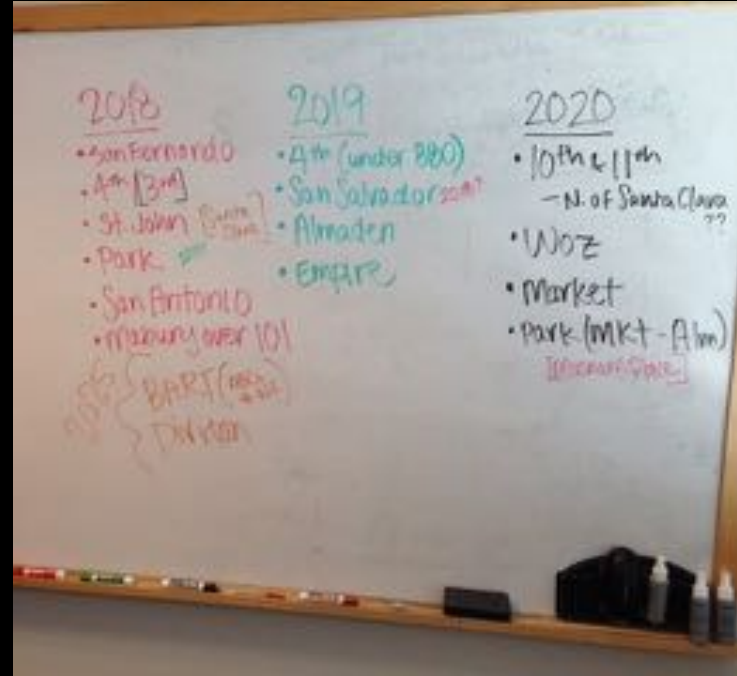 2018
• San Fernando
• 4th [3rd]
• St. John [Santa Clara]
• Park
• San Antonio
• Mabury over 101
BART (
2019
• 4th (under 880)
• San Salvador
• Almaden
• Empire
2020
• 10th & 11th
- N. of Santa Clara
??
• Woz
• Market
• Park (MKt - Alm)